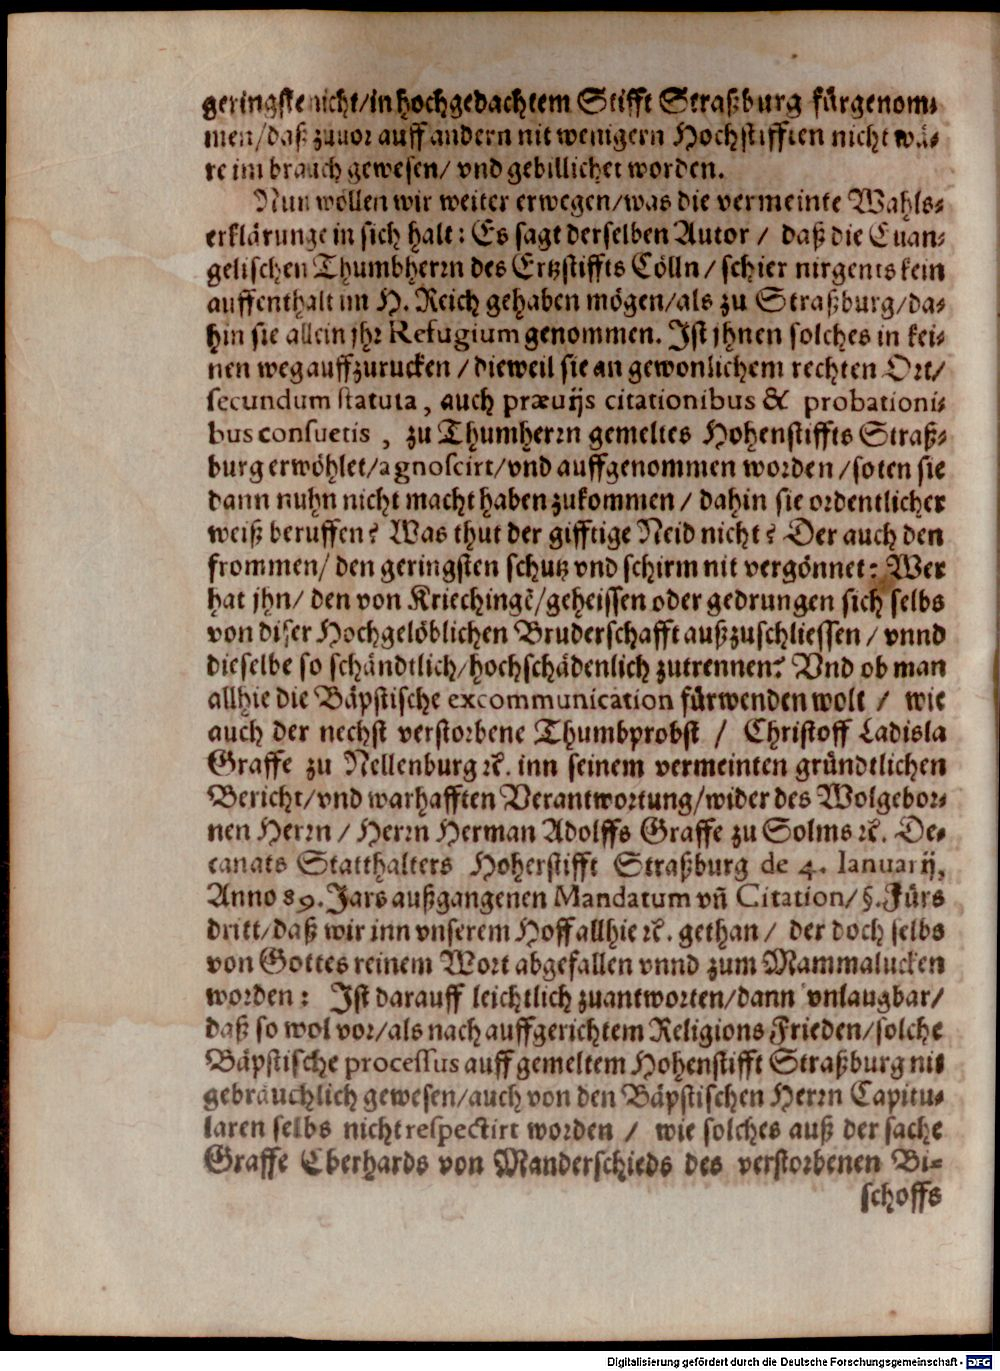 geringste nicht/in hochgedachtem Stifft Straßburg fürgenom⸗
men/daß zuuor auff andern nit wenigern Hochstifften nicht wä⸗
re im brauch gewesen/ vnd gebillichet worden.
Nun wöllen wir weiter erwegen/was die vermeinte Wahls⸗
erklärunge in sich halt: Es sagt derselben Autor / daß die Euan⸗
gelischen Thumbherrn des Ertzstiffts Cölln / schier nirgents kein
auffenthalt im H. Reich gehaben mögen/als zu Straßburg/da⸗
hin sie allein jhr Refugium genommen. Ist jhnen solches in kei⸗
nen weg auffzurucken / dieweil sie an gewonlichem rechten Ort/
secundum statuta, auch præuijs citationibus & probationi⸗
bus consuetis, zu Thumherrn gemeltes Hohenstiffts Straß⸗
burg erwöhlet/agnoscirt/vnd auffgenommen worden/soten sie
dann nuhn nicht macht haben zukommen / dahin sie ordentlicher
weiß beruffen? Was thut der gifftige Neid nicht? Der auch den
frommen/ den geringsten schutz vnd schirm nit vergönnet: Wer
hat jhn/ den von Kriechingẽ/geheissen oder gedrungen sich selbs
von diser Hochgelöblichen Bruderschafft außzuschliessen / vnnd
dieselbe so schändtlich/hochschädenlich zutrennen? Vnd ob man
allhie die Bäpstische excommunication fürwenden wolt / wie
auch der nechst verstorbene Thumbprobst / Christoff Ladisla
Graffe zu Nellenburg ꝛc. inn seinem vermeinten gründtlichen
Bericht/vnd warhafften Verantwortung/wider des Wolgebor⸗
nen Herrn / Herrn Herman Adolffs Graffe zu Solms ꝛc. De⸗
canats Statthalters Hoherstifft Straßburg de 4. Ianuarij,
Anno 89. Jars außgangenen Mandatum vñ Citation/ §. Fürs
dritt/daß wir inn vnserem Hoff allhie ꝛc. gethan / der doch selbs
von Gottes reinem Wort abgefallen vnnd zum Mammalucken
worden: Ist darauff leichtlich zuantworten/dann vnlaugbar/
daß so wol vor/als nach auffgerichtem Religions Frieden/solche
Bäpstische processus auff gemeltem Hohenstifft Straßburg nit
gebräuchlich gewesen/auch von den Bäpstischen Herrn Capitu⸗
laren selbs nicht respectirt worden / wie solches auß der sache
Graffe Eberhards von Manderschieds des verstorbenen Bi⸗
schoffs
Digitalisierung gefördert durch die Deutsche Forschungsgemeinschaft - DFG